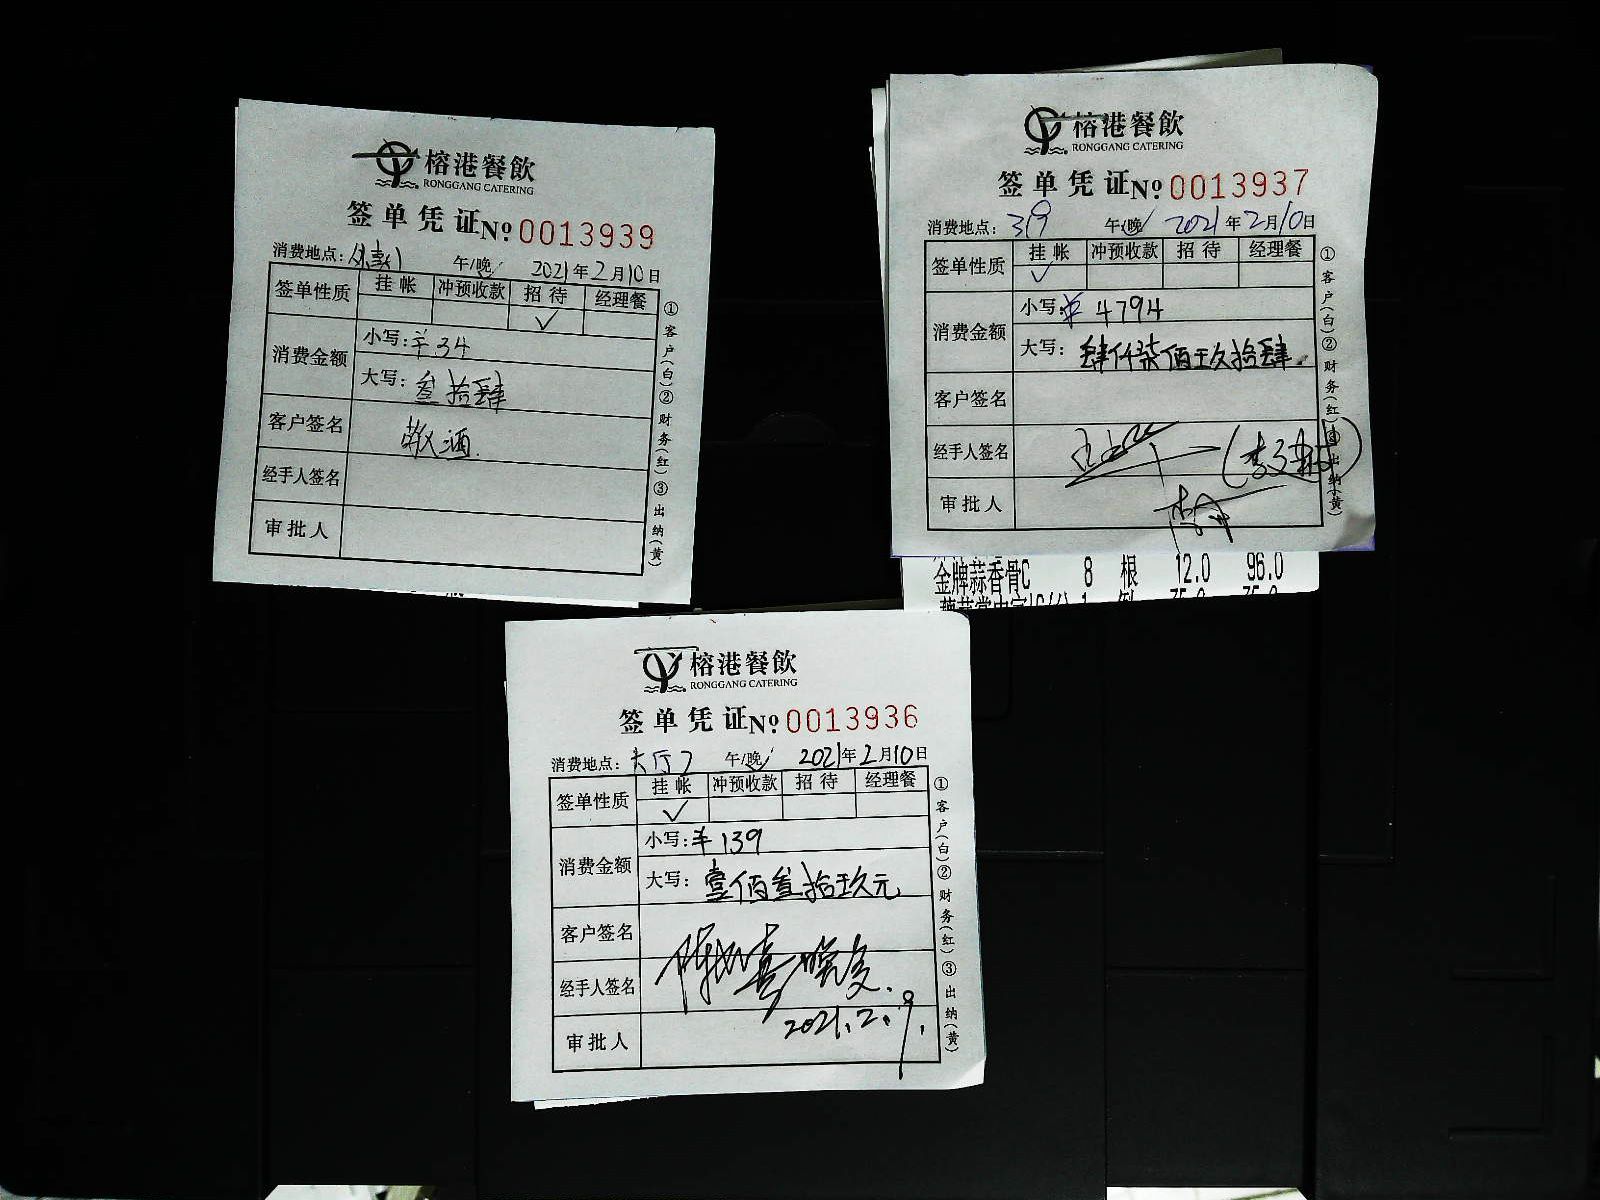 榕港餐飲
RONGGANG CATERING
签单凭证№ 0013939
消费地点: 午/晚 2021年2月10日
签单性质 挂帐 冲预收款 招待 经理餐
✓
消费金额 小写:¥34
大写:叁拾肆
客户签名 敬酒.
经手人签名
审批人
①客户(白)②财务(红)③出纳(黄)
榕港餐飲
RONGGANG CATERING
签单凭证№ 0013937
消费地点: 319 午/晚 2021年2月10日
签单性质 挂帐 冲预收款 招待 经理餐
✓
消费金额 小写:¥4794
大写:肆仟柒佰玖拾肆.
客户签名
经手人签名
审批人
①客户(白)②财务(红)③出纳(黄)
金牌蒜香骨C 8 根 12.0 96.0
榕港餐飲
RONGGANG CATERING
签单凭证№ 0013936
消费地点: 大厅2 午/晚 2021年2月10日
签单性质 挂帐 冲预收款 招待 经理餐
✓
消费金额 小写:¥139
大写:壹佰叁拾玖元
客户签名
经手人签名
2021.2.9.
审批人
①客户(白)②财务(红)③出纳(黄)